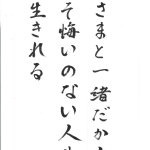 さまと一緒だか
そ悔いのない人
生きれる